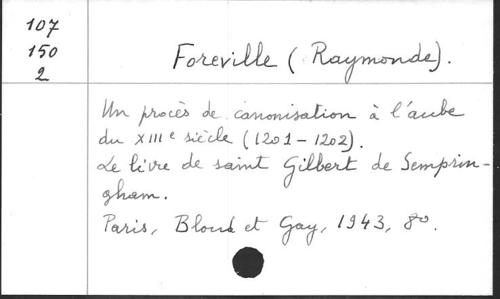 107
150
2
Foreville (Raymonde).
Un procès de canonisation à l'aube
du XIIIe siècle (1201-1202).
Le livre de saint Gilbert de Semprin-
gham.
Paris, Bloud et Gay, 1943, 8o.